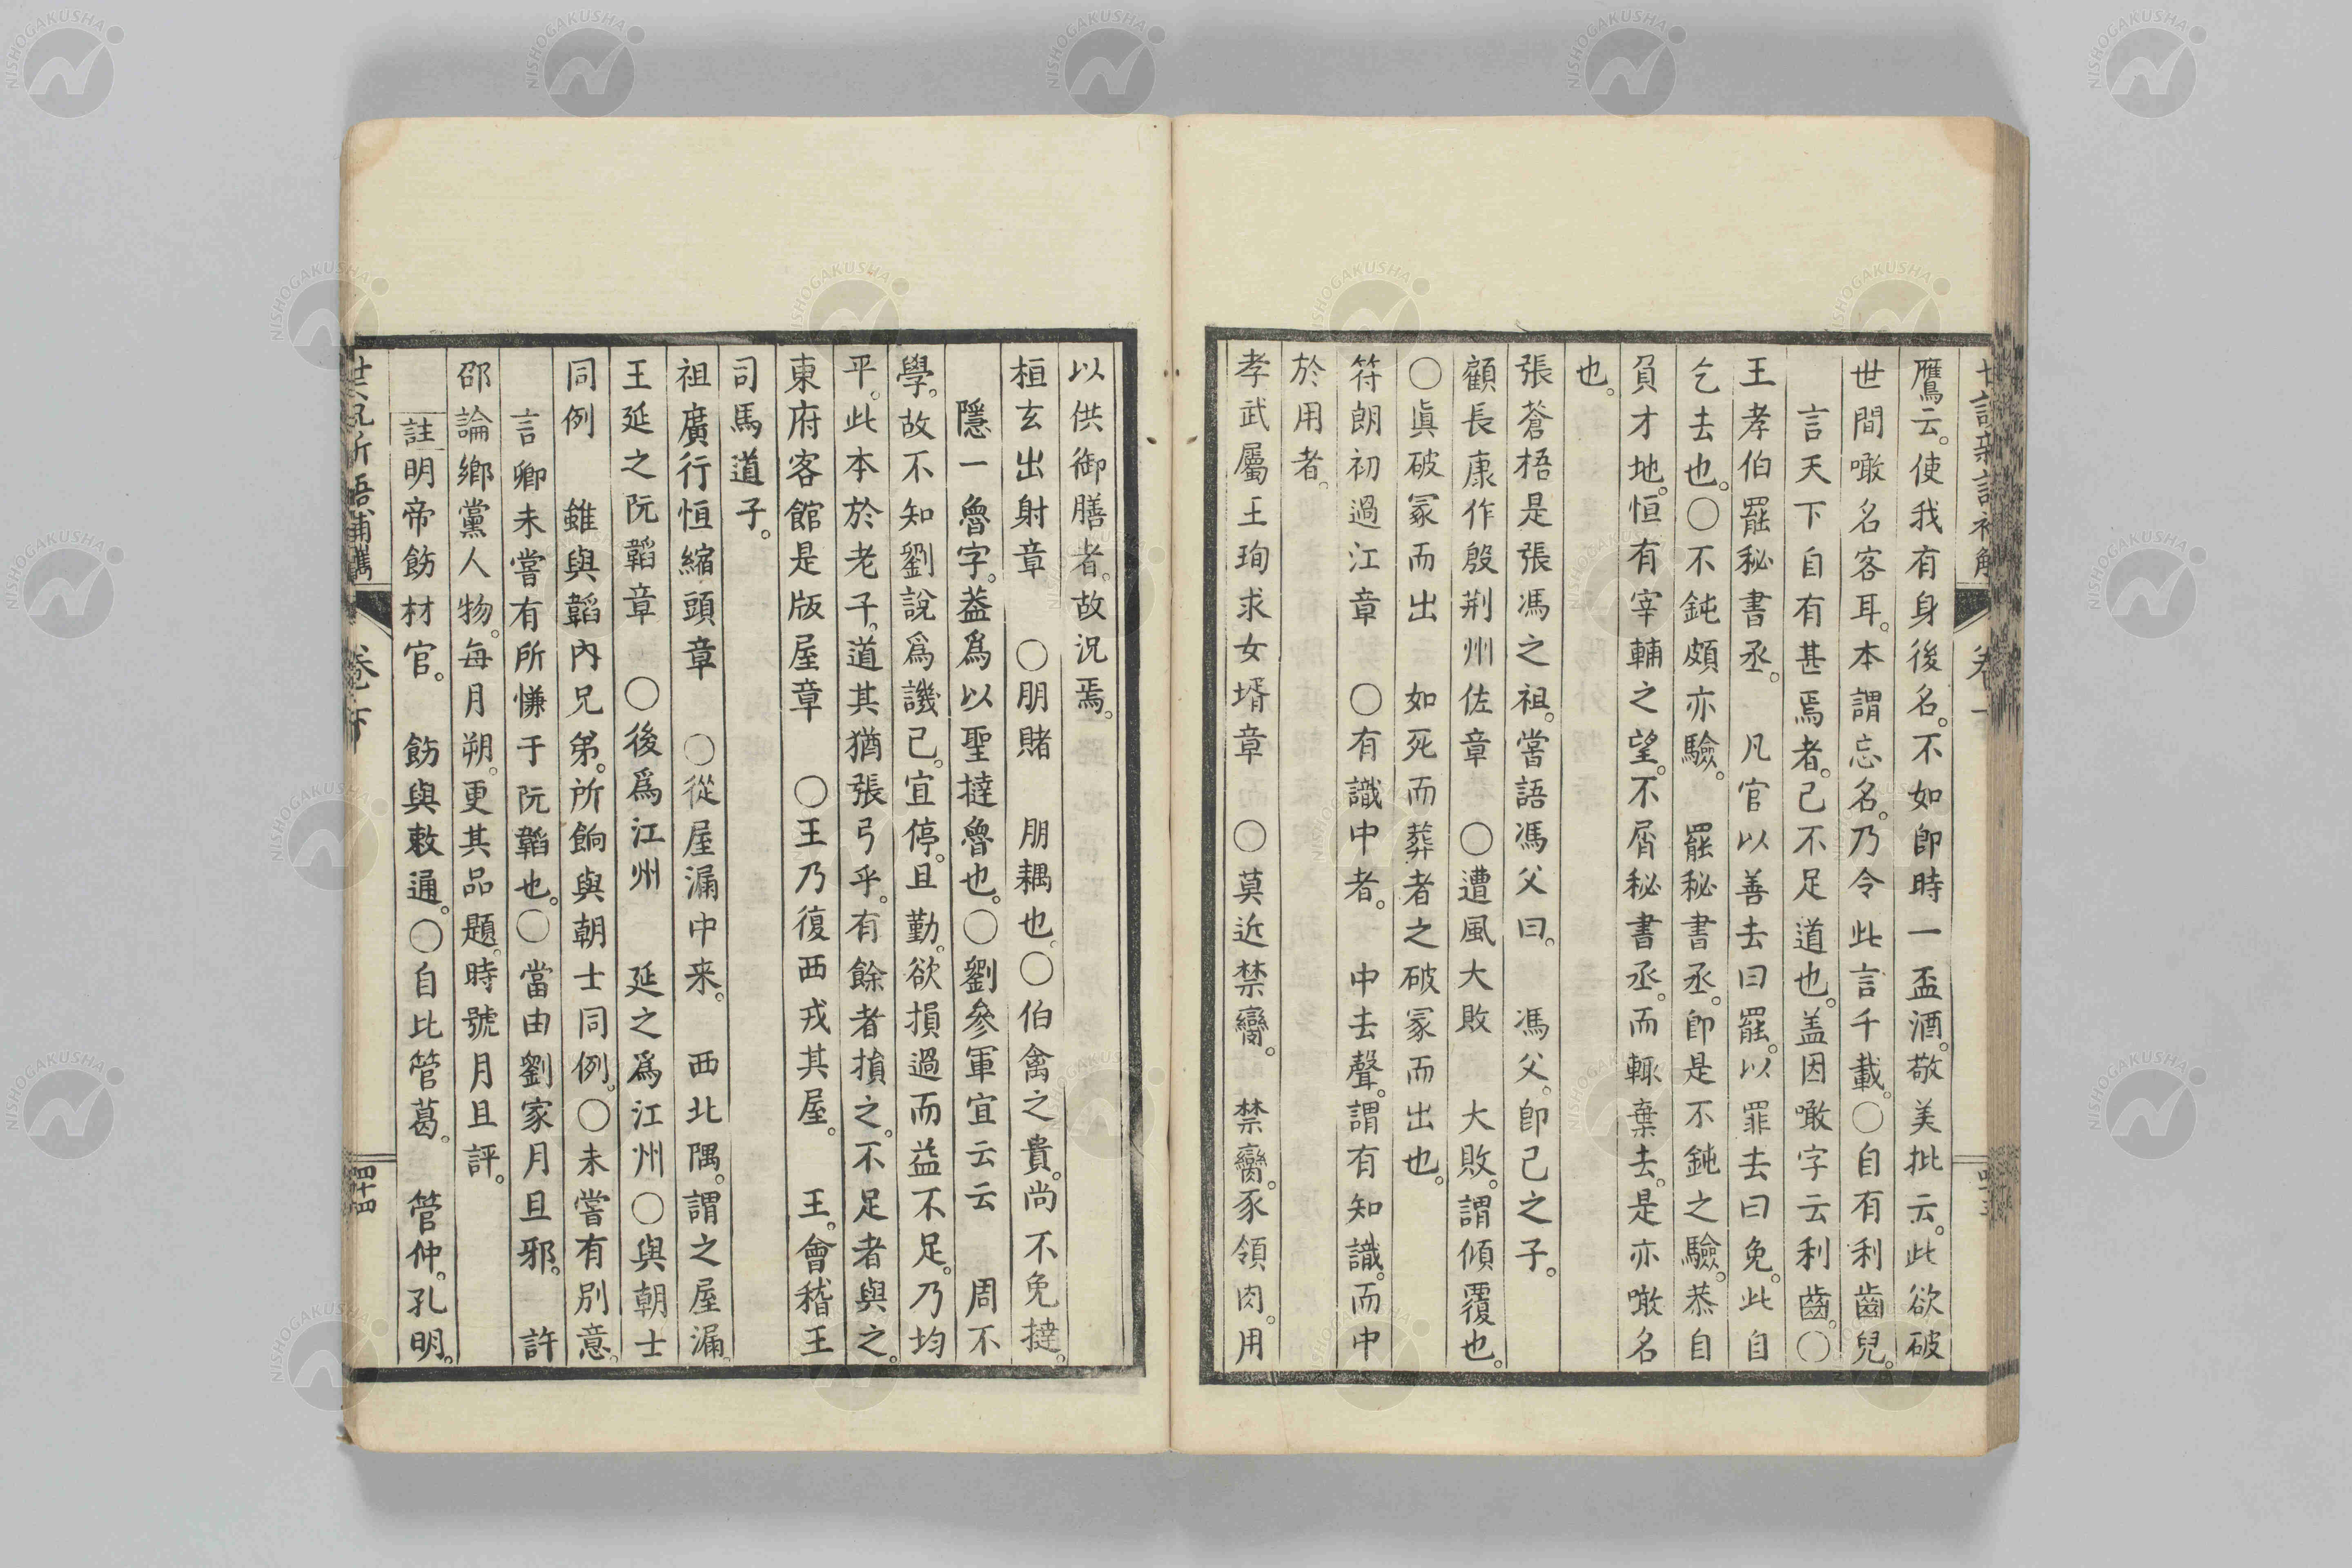 鷹云。使我有身後名。不如卽時一盃酒。敬美批云。此欲破
世間噉名客耳。本謂忘名。乃令此言千載。○自有利齒兒。
言天下自有甚焉者。己不足道也。盖因噉字云利齒。○
王孝伯罷秘書丞。　凡官以善去曰罷。以罪去曰免。此自
乞去也。○不鈍頗亦驗。　罷秘書丞。卽是不鈍之驗。恭自
負才地。恒有宰輔之望。不屑秘書丞。而輙棄去。是亦噉名
也。
張蒼梧是張馮之祖。嘗語馮父曰。　馮父。卽己之子。
顧長康作殷荆州佐章　○遭風大敗　大敗。謂傾覆也。
○眞破冢而出　如死而葬者之破冢而出也。
符朗初過江章　○有識中者。　中去聲。謂有知識。而中
於用者。
孝武屬王珣求女壻章　○莫近禁臠。　禁臠。豕領肉。用
以供御膳者。故況焉。
桓玄出射章　○朋賭　朋耦也。○伯禽之貴。尚不免撻。
隱一魯字。葢爲以聖撻魯也。○劉參軍宜云云　周不
學。故不知劉說爲譏己。宜停。且勤。欲損過而益不足。乃均
平。此本於老子。道其猶張弓乎。有餘者損之。不足者與之。
東府客館是版屋章　○王乃復西戎其屋。　王。會稽王
司馬道子。
祖廣行恒縮頭章　○從屋漏中来。　西北隅。謂之屋漏。
王延之阮韜章　○後爲江州　延之爲江州○與朝士
同例　雖與韜內兄弟。所餉與朝士同例。○未嘗有別意。
言卿未嘗有所慊于阮韜也。○當由劉家月旦邪。　許
邵論鄉黨人物。每月朔。更其品題。時號月旦評。
註明帝飭材官。　飭與敕通。○自比管葛。　管仲。孔明。
卷下
四十四
NISHOGAKUSHA